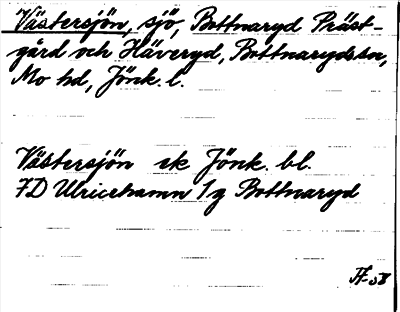 Västersjön, sjö, Bottnaryd Präst-
gård och Häveryd, Bottnarydssn,
Mo hd, Jönk. l.
Västersjön ek Jönk. bl.
7D Ulricehamn 1g Bottnaryd